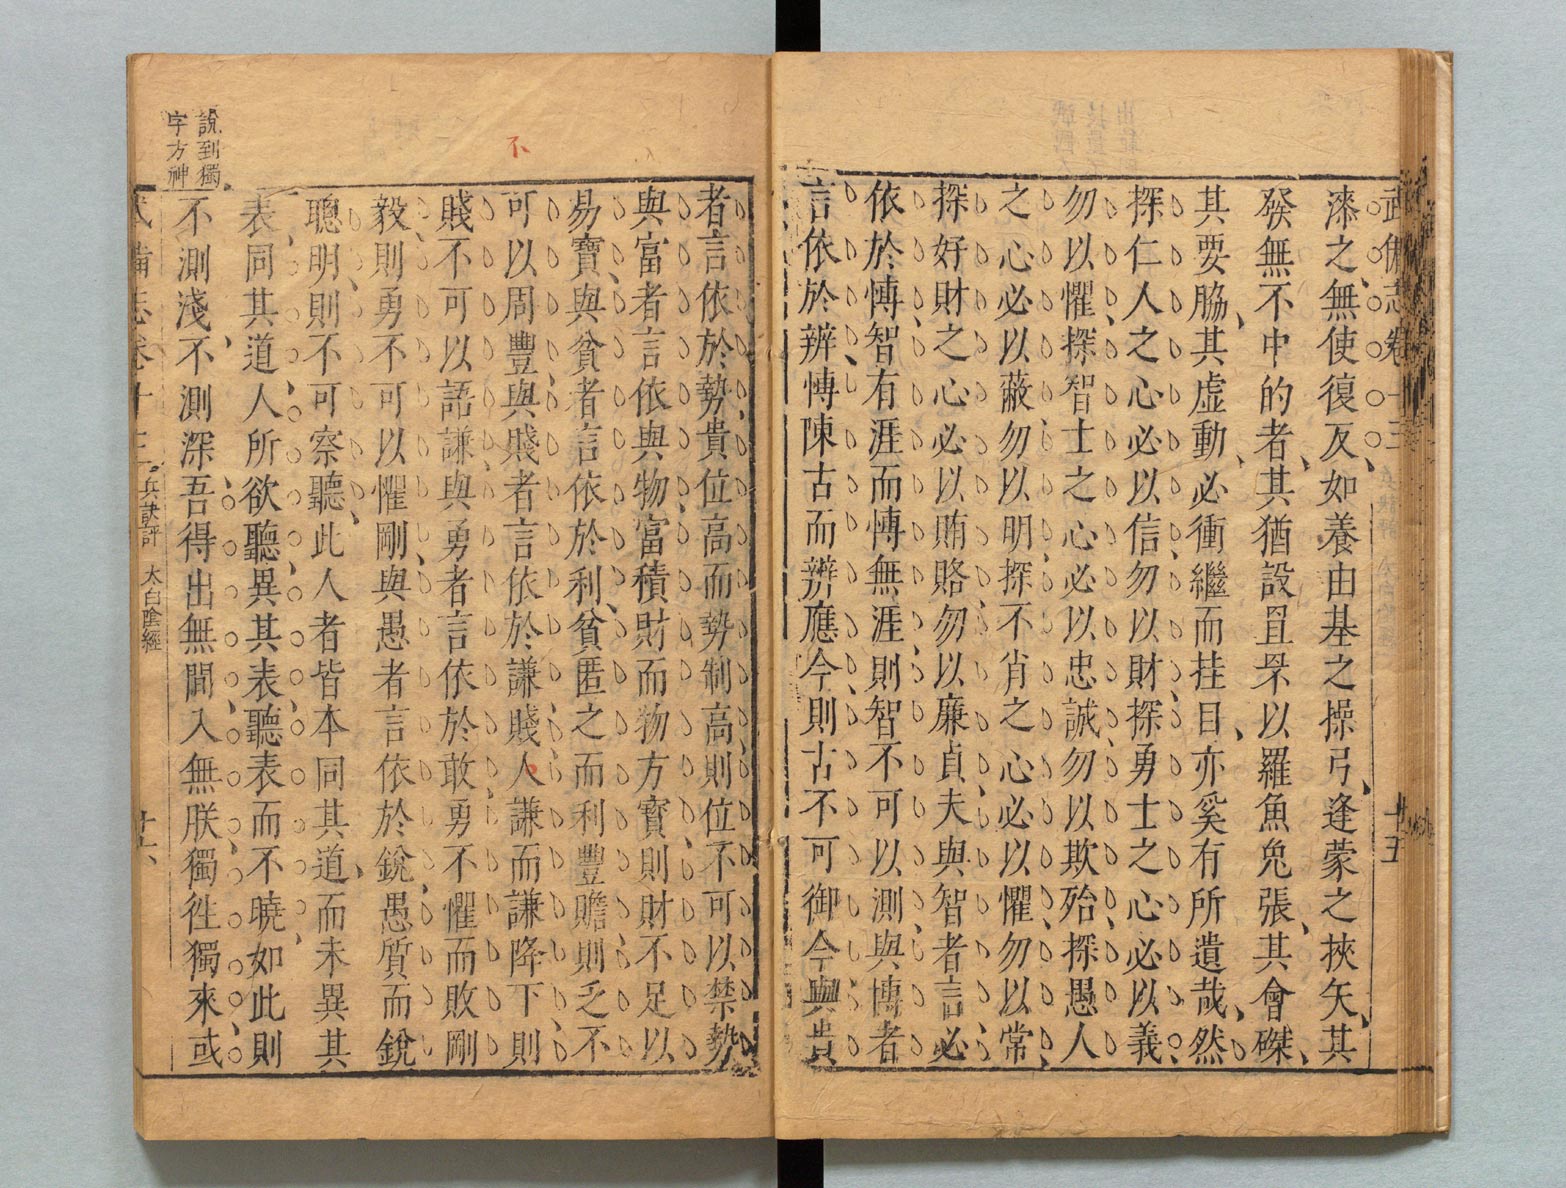 武備志卷十三
漆之無使復反如養由基之操弓逢蒙之挾矢其
發無不中的者其猶設罝罘以羅魚兔張其會磔
其要脇其虛動必衝繼而挂目亦奚有所遺哉然
探仁人之心必以信勿以財探勇士之心必以義
勿以懼探智士之心必以忠誠勿以欺殆探愚人
之心必以蔽勿以明探不肖之心必以懼勿以常
探好財之心必以賄賂勿以廉貞夫與智者言必
依於慱智有涯而慱無涯則智不可以測與博者
言依於辨慱陳古而辨應今則古不可御今與貴
十五
不
者言依於勢貴位高而勢制高則位不可以禁勢
與富者言依與物富積財而物方寶則財不足以
易寶與貧者言依於利貧匱之而利豐贍則乏不
可以周豐與賤者言依於謙賤人謙而謙降下則
賤不可以語謙與勇者言依於敢勇不懼而敗剛
毅則勇不可以懼剛與愚者言依於銳愚質而銳
聰明則不可察聽此人者皆本同其道而未異其
表同其道人所欲聽異其表聽表而不曉如此則
不測淺不測深吾得出無間入無朕獨徃獨來或
說到獨
字方神
武備志卷十三 兵訣評 太白陰經
十六